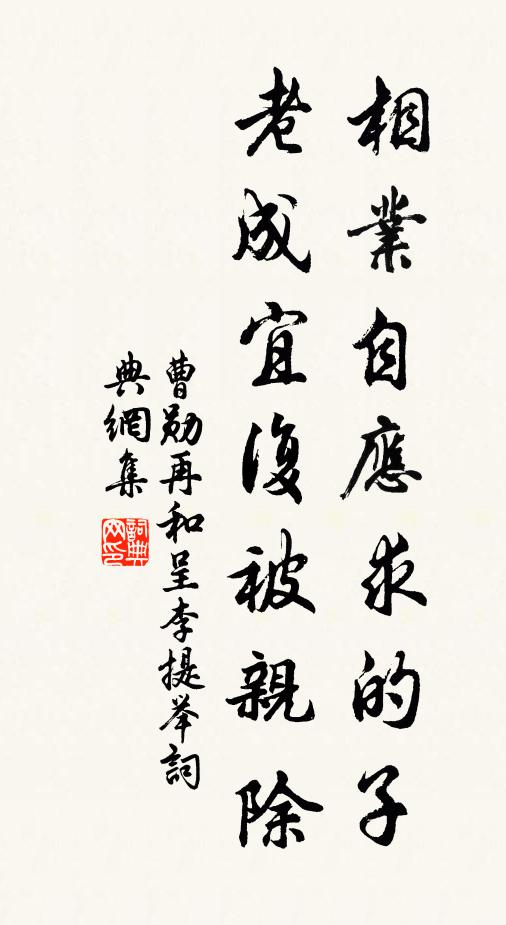 相業自應求的子
老成宜復被親除
曹勛再和呈李提举詞
典網集
詞典網印